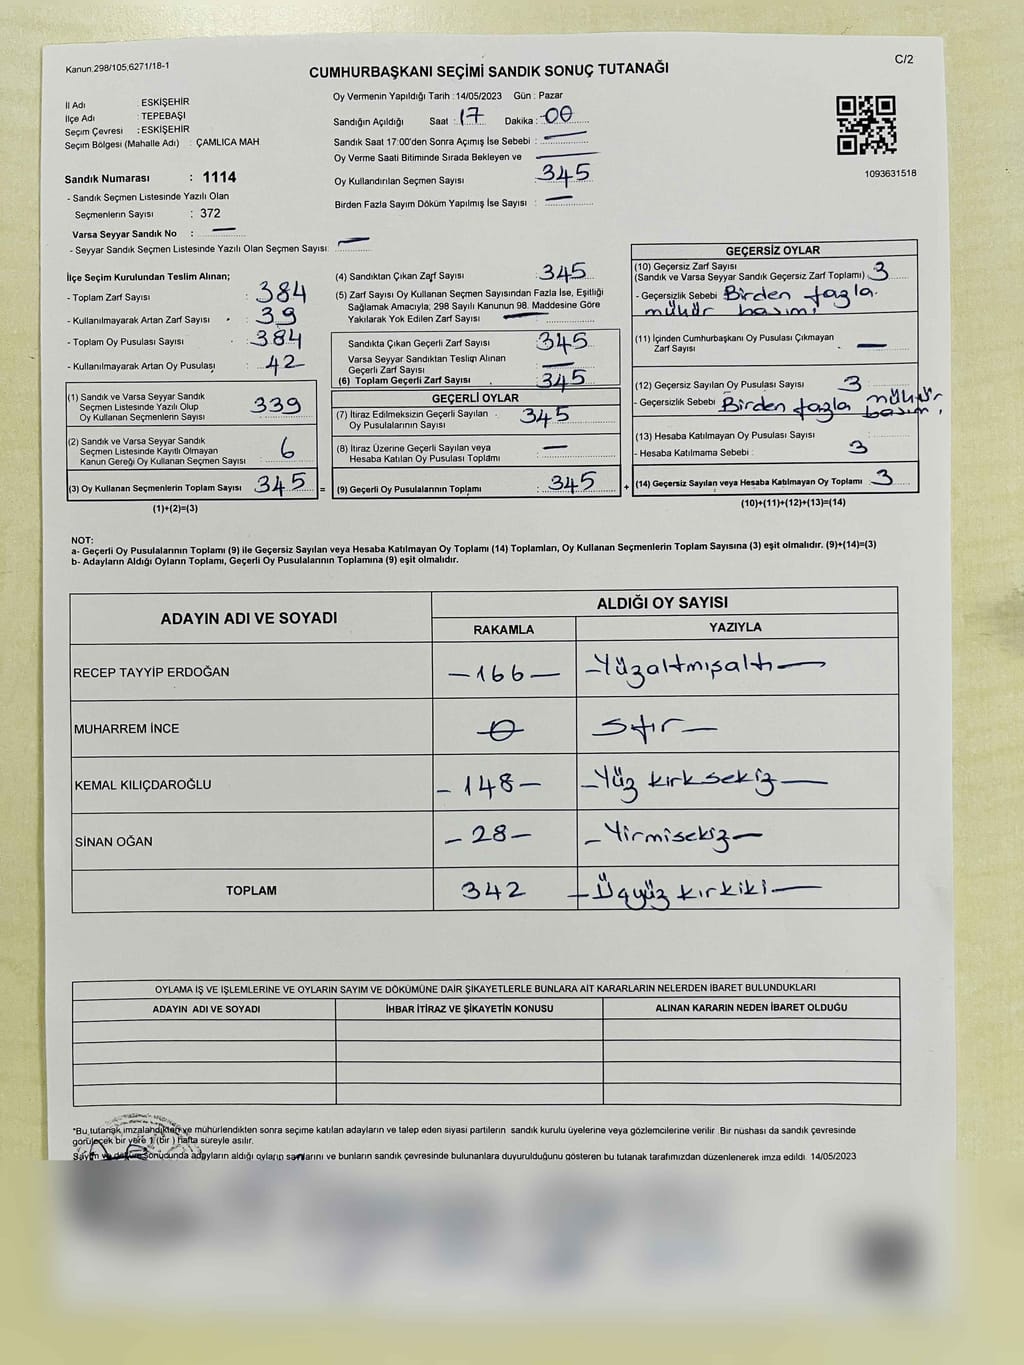 Kanun.298/105,6271/18-1
C/2
CUMHURBAŞKANI SEÇİMİ SANDIK SONUÇ TUTANAĞI
İl Adı : ESKİŞEHİR
İlçe Adı : TEPEBAŞI
Seçim Çevresi : ESKİŞEHİR
Seçim Bölgesi (Mahalle Adı) : ÇAMLICA MAH
Sandık Numarası : 1114
- Sandık Seçmen Listesinde Yazılı Olan
Seçmenlerin Sayısı : 372
Varsa Seyyar Sandık No : —
- Seyyar Sandık Seçmen Listesinde Yazılı Olan Seçmen Sayısı: —
Oy Vermenin Yapıldığı Tarih : 14/05/2023 Gün : Pazar
Sandığın Açıldığı Saat : 17 Dakika : 00
Sandık Saat 17:00'den Sonra Açımış İse Sebebi : —
Oy Verme Saati Bitiminde Sırada Bekleyen ve —
Oy Kullandırılan Seçmen Sayısı 345
Birden Fazla Sayım Döküm Yapılmış İse Sayısı : —
1093631518
İlçe Seçim Kurulundan Teslim Alınan;
- Toplam Zarf Sayısı : 384
- Kullanılmayarak Artan Zarf Sayısı : 39
- Toplam Oy Pusulası Sayısı : 384
- Kullanılmayarak Artan Oy Pusulası : 42
(1) Sandık ve Varsa Seyyar Sandık
Seçmen Listesinde Yazılı Olup
Oy Kullanan Seçmenlerin Sayısı 339
(2) Sandık ve Varsa Seyyar Sandık
Seçmen Listesinde Kayıtlı Olmayan
Kanun Gereği Oy Kullanan Seçmen Sayısı 6
(3) Oy Kullanan Seçmenlerin Toplam Sayısı 345 =
(1)+(2)=(3)
(4) Sandıktan Çıkan Zarf Sayısı 345
(5) Zarf Sayısı Oy Kullanan Seçmen Sayısından Fazla İse, Eşitliği
Sağlamak Amacıyla; 298 Sayılı Kanunun 98. Maddesine Göre
Yakılarak Yok Edilen Zarf Sayısı —
Sandıkta Çıkan Geçerli Zarf Sayısı 345
Varsa Seyyar Sandıktan Teslim Alınan
Geçerli Zarf Sayısı —
(6) Toplam Geçerli Zarf Sayısı 345
GEÇERLİ OYLAR
(7) İtiraz Edilmeksizin Geçerli Sayılan
Oy Pusulalarının Sayısı 345
(8) İtiraz Üzerine Geçerli Sayılan veya
Hesaba Katılan Oy Pusulası Toplamı —
(9) Geçerli Oy Pusulalarının Toplamı : 345 +
GEÇERSİZ OYLAR
(10) Geçersiz Zarf Sayısı
(Sandık ve Varsa Seyyar Sandık Geçersiz Zarf Toplamı) 3
- Geçersizlik Sebebi Birden fazla
mühür basımı
(11) İçinden Cumhurbaşkanı Oy Pusulası Çıkmayan
Zarf Sayısı —
(12) Geçersiz Sayılan Oy Pusulası Sayısı 3
- Geçersizlik Sebebi Birden fazla mühür
basım.
(13) Hesaba Katılmayan Oy Pusulası Sayısı
- Hesaba Katılmama Sebebi : 3
(14) Geçersiz Sayılan veya Hesaba Katılmayan Oy Toplamı 3
(10)+(11)+(12)+(13)=(14)
NOT:
a- Geçerli Oy Pusulalarının Toplamı (9) ile Geçersiz Sayılan veya Hesaba Katılmayan Oy Toplamı (14) Toplamları, Oy Kullanan Seçmenlerin Toplam Sayısına (3) eşit olmalıdır. (9)+(14)=(3)
b- Adayların Aldığı Oyların Toplamı, Geçerli Oy Pusulalarının Toplamına (9) eşit olmalıdır.
ADAYIN ADI VE SOYADI
ALDIĞI OY SAYISI
RAKAMLA YAZIYLA
RECEP TAYYİP ERDOĞAN —166— —Yüzaltmışaltı—
MUHARREM İNCE 0 Sıfır—
KEMAL KILIÇDAROĞLU —148— —Yüz kırksekiz—
SİNAN OĞAN —28— —Yirmisekiz—
TOPLAM 342 —Üçyüz kırkiki—
OYLAMA İŞ VE İŞLEMLERİNE VE OYLARIN SAYIM VE DÖKÜMÜNE DAİR ŞİKAYETLERLE BUNLARA AİT KARARLARIN NELERDEN İBARET BULUNDUKLARI
ADAYIN ADI VE SOYADI İHBAR İTİRAZ VE ŞİKAYETİN KONUSU ALINAN KARARIN NEDEN İBARET OLDUĞU
*Bu tutanak imzalandıktan ve mühürlendikten sonra seçime katılan adayların ve talep eden siyasi partilerin sandık kurulu üyelerine veya gözlemcilerine verilir. Bir nüshası da sandık çevresinde
görülecek bir yere 1 (bir) hafta süreyle asılır.
Sayım ve döküm sonucunda adayların aldığı oyların sayılarını ve bunların sandık çevresinde bulunanlara duyurulduğunu gösteren bu tutanak tarafımızdan düzenlenerek imza edildi. 14/05/2023